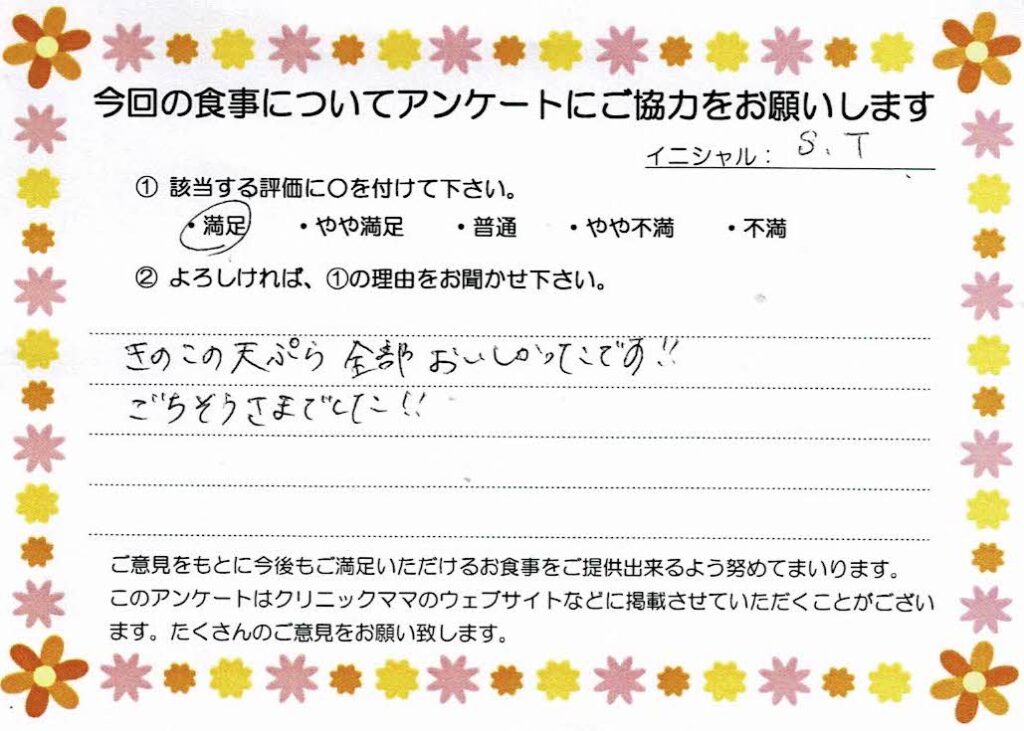 今回の食事についてアンケートにご協力をお願いします
イニシャル： S、T
① 該当する評価に〇を付けて下さい。
・満足 ・やや満足 ・普通 ・やや不満 ・不満
② よろしければ、①の理由をお聞かせ下さい。
きのこの天ぷら 全部 おいしかったです!!
ごちそうさまでした!!
ご意見をもとに今後もご満足いただけるお食事をご提供出来るよう努めてまいります。
このアンケートはクリニックママのウェブサイトなどに掲載させていただくことがござい
ます。たくさんのご意見をお願い致します。